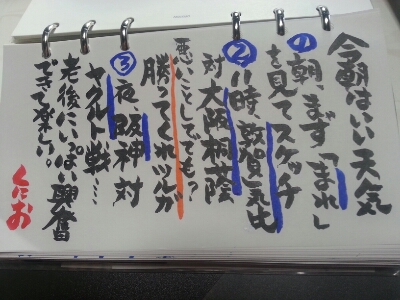 今朝はいい天気
①朝、まず「まれ」
を見てスケッチ
②11時、敦賀気比
対大阪桐蔭
悪いことしてても?
勝ってくれツルガ
③夜阪神対
ヤクルト戦…
老後にいっぱい興奮
できて楽しい。
くにお